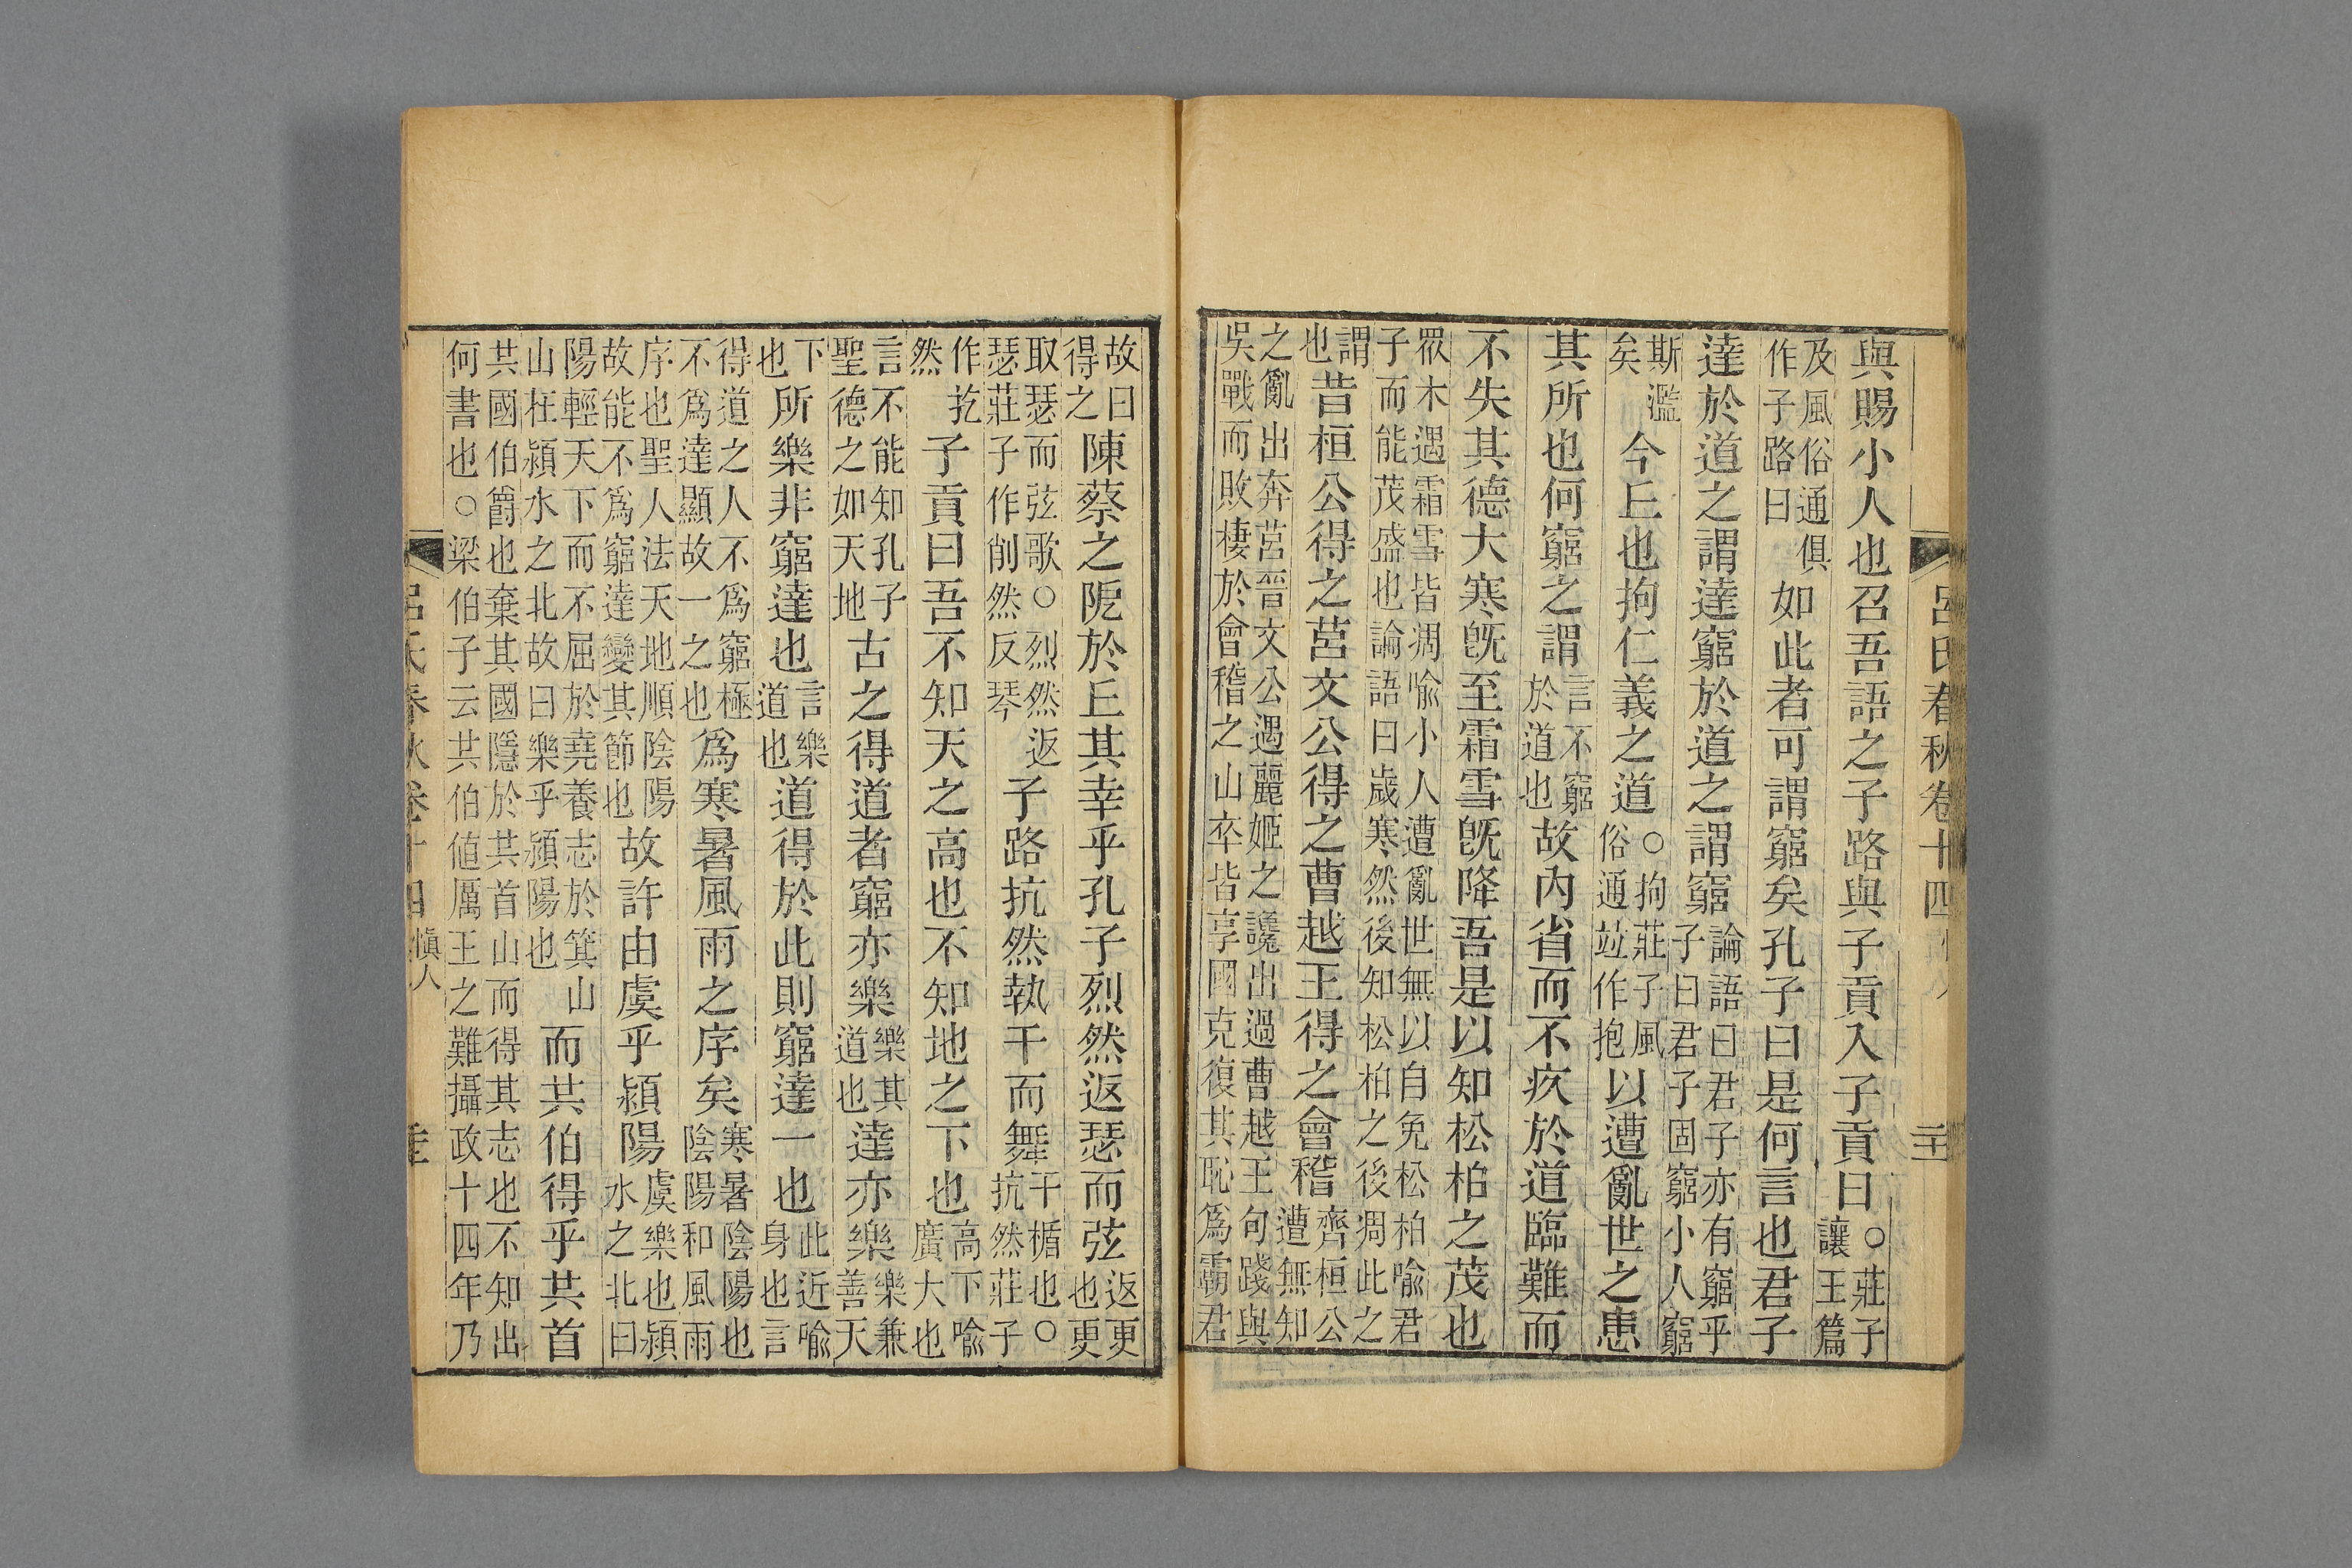 呂氏春秋卷十四 二十
與賜小人也召吾語之子路與子貢入子貢曰○莊子讓王篇
及風俗通俱作子路曰如此者可謂窮矣孔子曰是何言也君子
達於道之謂達窮於道之謂窮論語曰君子亦有窮乎子曰君子固窮小人窮
斯濫矣今丘也拘仁義之道○拘莊子風俗通竝作抱以遭亂世之患
其所也何窮之謂言不窮於道也故內省而不疚於道臨難而
不失其德大寒旣至霜雪旣降吾是以知松柏之茂也
眾木遇霜雪皆凋喻小人遭亂世無以自免松柏喻君
子而能茂盛也論語曰歲寒然後知松柏之後凋此之
謂也昔桓公得之莒文公得之曹越王得之會稽齊桓公遭無知
之亂出奔莒晉文公遇麗姬之讒出過曹越王句踐與
吳戰而敗棲於會稽之山卒皆享國克復其恥爲霸君
故曰得之陳蔡之阨於丘其幸乎孔子烈然返瑟而弦返更也更
取瑟而弦歌○烈然返瑟莊子作削然反琴子路抗然執干而舞干楯也○抗然莊子
作扢然子貢曰吾不知天之高也不知地之下也高下喻廣大也
言不能知孔子聖德之如天地古之得道者窮亦樂樂其道也達亦樂樂兼善天
下也所樂非窮達也言樂道也道得於此則窮達一也此近喻身也言
得道之人不爲窮極不爲達顯故一之也爲寒暑風雨之序矣寒暑陰陽也陰陽和風雨
序也聖人法天地順陰陽故能不爲窮達變其節也故許由虞乎潁陽虞樂也潁水之北曰
陽輕天下而不屈於堯養志於箕山山在潁水之北故曰樂乎潁陽也而共伯得乎共首
共國伯爵也棄其國隱於共首山而得其志也不知出
何書也○梁伯子云共伯値厲王之難攝政十四年乃
呂氏春秋卷十四 愼人